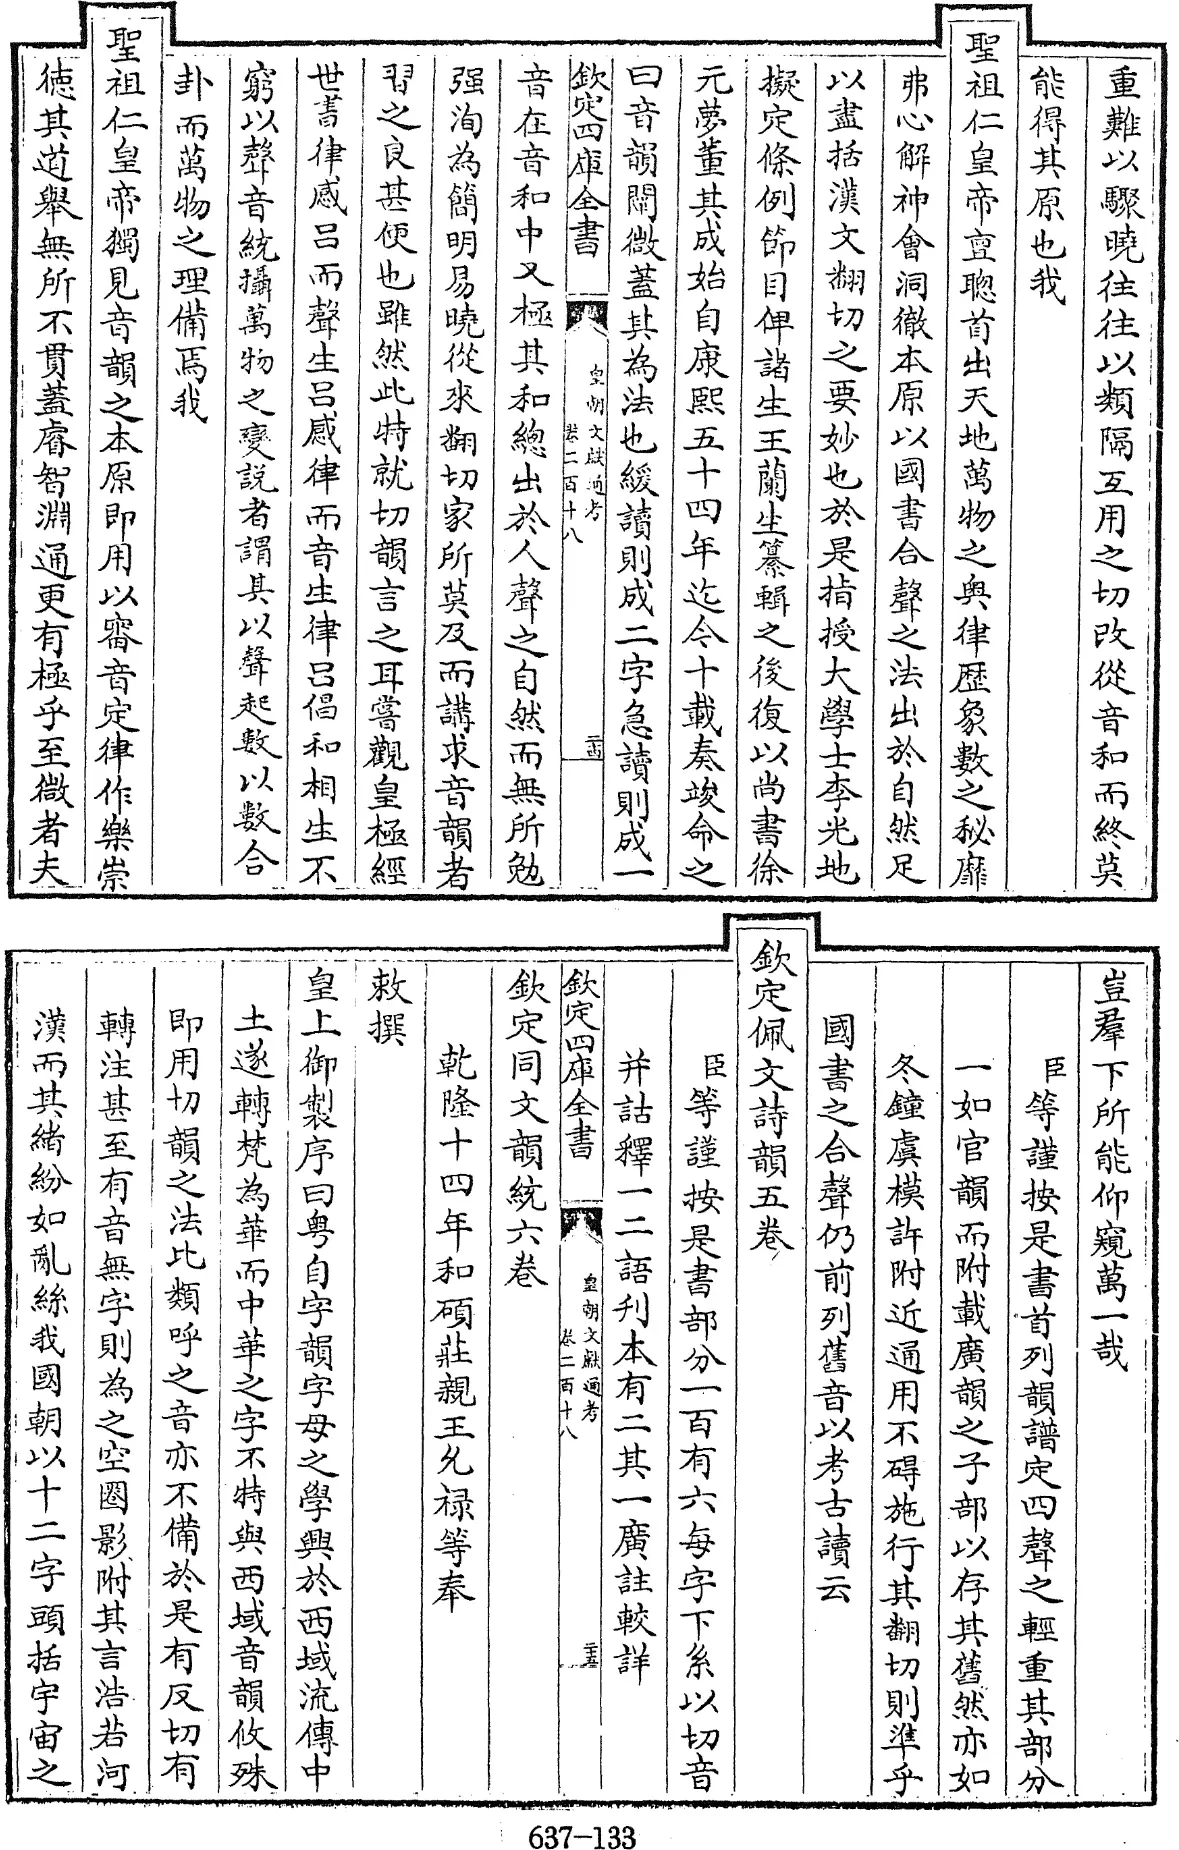 重難以驟曉往往以類隔互用之切改從音和而終莫
能得其原也我
聖祖仁皇帝亶聰首出天地萬物之奥律歴象數之秘靡
弗心解神會洞徹本原以國書合聲之法出於自然足
以盡括漢文翻切之要妙也於是指授大學士李光地
擬定條例節目俾諸生王蘭生纂輯之後復以尚書徐
元夢董其成始自康熙五十四年迄今十載奏竣命之
曰音韻闡微蓋其為法也緩讀則成二字急讀則成一
欽定四庫全書
皇朝文獻通考
卷二百十八
二十四
音在音和中又極其和總出於人聲之自然而無所勉
强洵為簡明易曉從來翻切家所莫及而講求音韻者
習之良甚便也雖然此特就切韻言之耳嘗觀皇極經
世書律感呂而聲生呂感律而音生律呂倡和相生不
窮以聲音統攝萬物之變説者謂其以聲起數以數合
卦而萬物之理備焉我
聖祖仁皇帝獨見音韻之本原即用以審音定律作樂崇
德其道舉無所不貫蓋睿智淵通更有極乎至微者夫
豈羣下所能仰窺萬一哉
臣等謹按是書首列韻譜定四聲之輕重其部分
一如官韻而附載廣韻之子部以存其舊然亦如
冬鐘虞模許附近通用不碍施行其翻切則準乎
國書之合聲仍前列舊音以考古讀云
欽定佩文詩韻五卷
臣等謹按是書部分一百有六每字下系以切音
并詁釋一二語刋本有二其一廣註較詳
欽定四庫全書
皇朝文獻通考
卷二百十八
二十五
欽定同文韻統六卷
乾隆十四年和碩莊親王允禄等奉
敕撰
皇上御製序曰粤自字韻字母之學興於西域流傳中
土遂轉梵為華而中華之字不特與西域音韻攸殊
即用切韻之法比類呼之音亦不備於是有反切有
轉注甚至有音無字則為之空圈影附其言浩若河
漢而其緒紛如亂絲我國朝以十二字頭括宇宙之
637-133